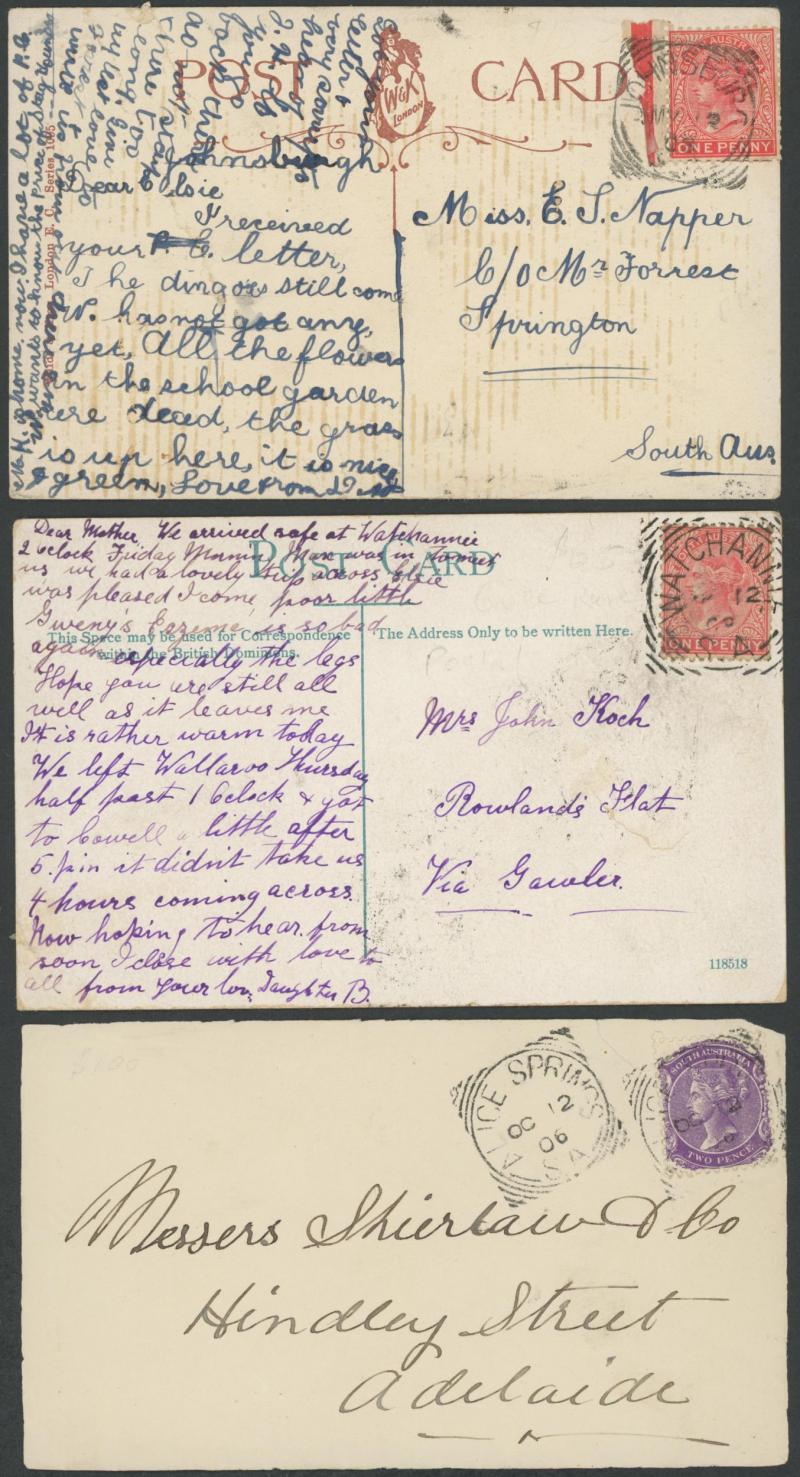 POST CARD
W&K
London
London E.C. Series, 1095
SOUTH AUSTRALIA
ONE PENNY
JOHNSBURG
Johnsburgh
Dear Elsie
I received
your letter,
The dingoes still come
W. has not got any,
yet, All the flowers
in the school garden
are dead, the grass
is up here, it is nice
& green, Love from
Mr H. is home now. I have a lot of
W. wants to know the price of
Miss. E. S. Napper
C/O Mr Forrest
Springton
South Aus.
POST CARD
This Space may be used for Correspondence
within the British Dominions.
The Address Only to be written Here.
118518
WATCHANNIE
12
ONE PENNY
Dear Mother, We arrived safe at Watchannie
2 oclock Friday Mornin Max was in to meet
us we had a lovely trip across Elsie
was pleased I come, poor little
Gweny's Eazeme is so bad
again especially the legs
Hope you are still all
well as it leaves me
It is rather warm today
We left Wallaroo Thursday
half past 1 Oclock & got
to Cowell a little after
5. pm it didn't take us
4 hours coming across.
Now hoping to hear from
soon I close with love to
all from your lov. Daughter B.
Mrs John Koch
Rowland's Flat
Via Gawler.
$100
ALICE SPRINGS
OC 12
06
S.A
SOUTH AUSTRALIA
TWO PENCE
Messers Shierlaw & Co
Hindley Street
Adelaide